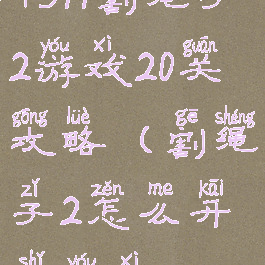 yóu xì guān
2游戏20关
gōng lüè gē shéng
攻略(割绳
zǐ zěn me kāi
子2怎么开
shǐ yóu xì